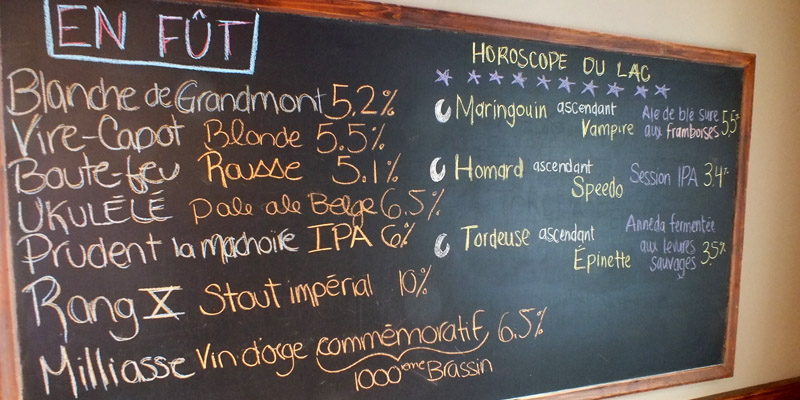 EN FÛT
Blanche de Grandmont 5,2%
Vire-Capot Blonde 5.5%
Boute-feu Rousse 5.1%
UKULÉLÉ pale ale Belge 6.5%
Prudent la machoire IPA 6%
Rang X Stout impérial 10%
Milliasse Vin d'orge commémoratif 6.5%
1000ième Brassin
HOROSCOPE DU LAC
Maringouin ascendant Vampire
Ale de blé sure
aux framboises 5,5%
Homard ascendant Speedo
Session IPA 3.4%
Tordeuse ascendant Épinette
Anneda fermentée
aux levures
sauvages 3.5%